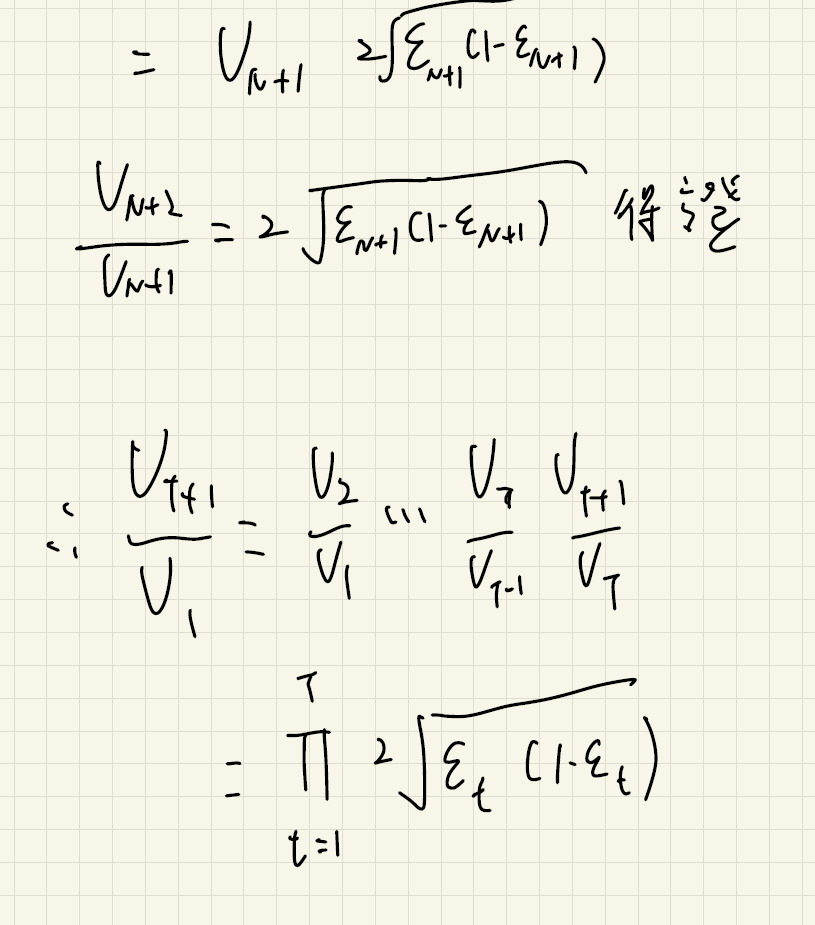 = U_{N+1} 2√(ε_{N+1}(1-ε_{N+1}))
U_{N+2}/U_{N+1} = 2√(ε_{N+1}(1-ε_{N+1})) 得證
∴ U_{T+1}/U_1 = U_2/U_1 ... U_T/U_{T-1} U_{T+1}/U_T
= ∏_{t=1}^{T} 2√(ε_t (1-ε_t))